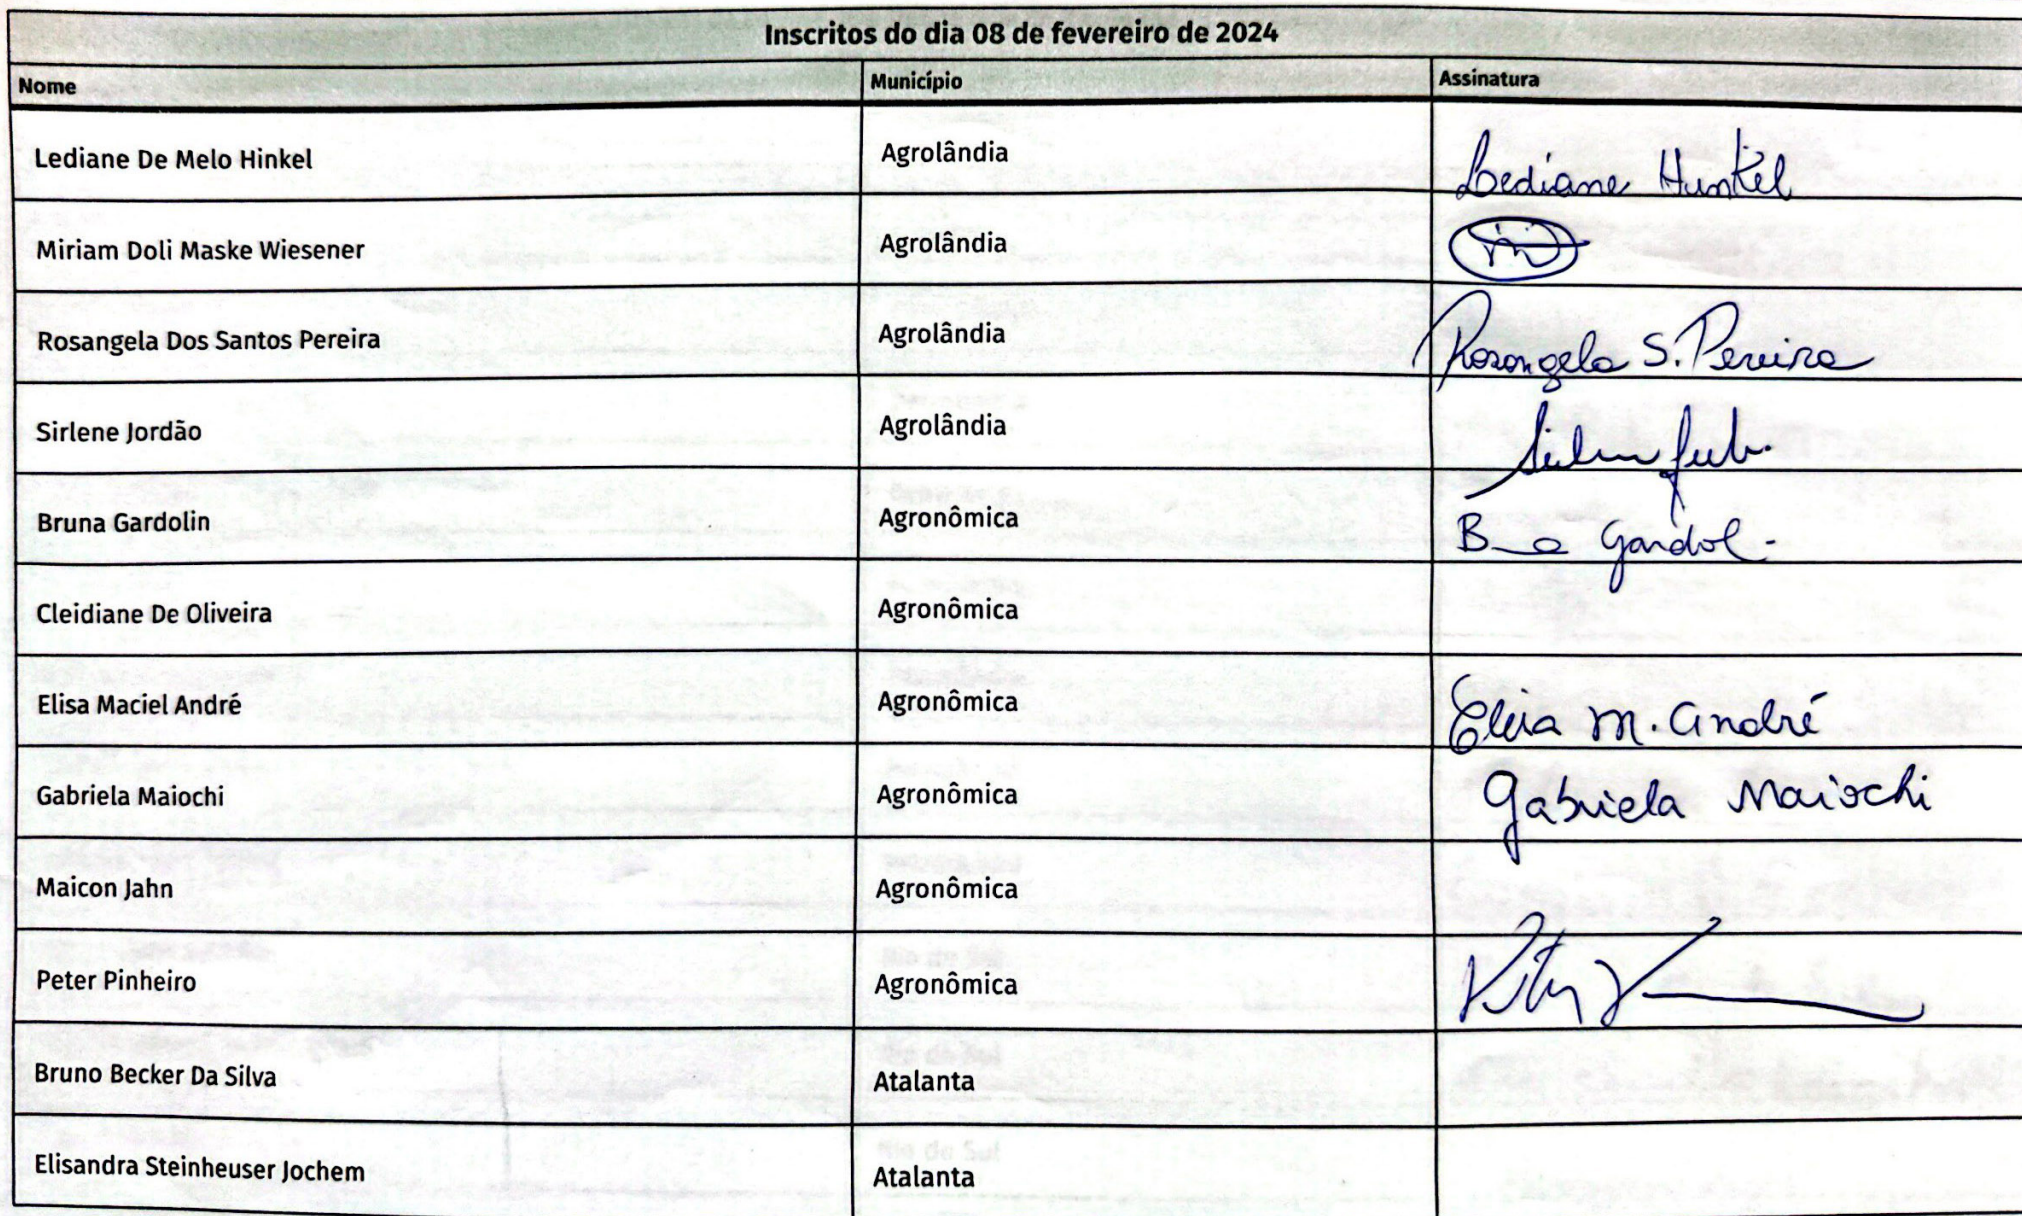 Inscritos do dia 08 de fevereiro de 2024
Nome Município Assinatura
Lediane De Melo Hinkel Agrolândia Lediane Hinkel
Miriam Doli Maske Wiesener Agrolândia
Rosangela Dos Santos Pereira Agrolândia Rosangela S. Pereira
Sirlene Jordão Agrolândia
Bruna Gardolin Agronômica
Cleidiane De Oliveira Agronômica
Elisa Maciel André Agronômica Elisa M. André
Gabriela Maiochi Agronômica Gabriela Maiochi
Maicon Jahn Agronômica
Peter Pinheiro Agronômica
Bruno Becker Da Silva Atalanta
Elisandra Steinheuser Jochem Atalanta